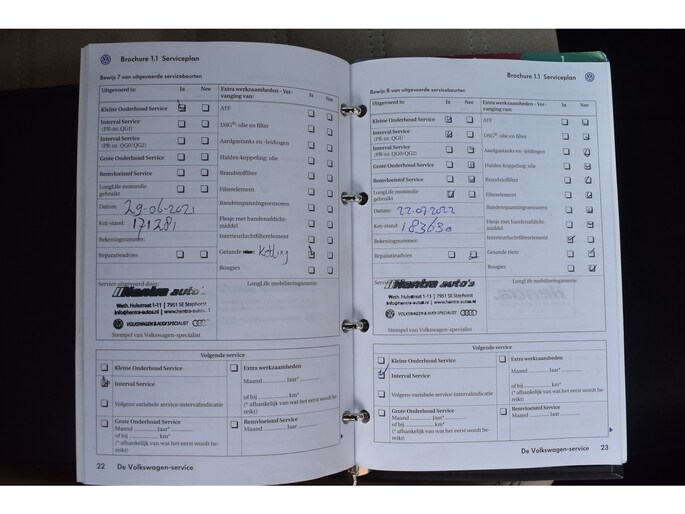 Brochure 1.1 Serviceplan
Bewijs 7 van uitgevoerde servicebeurten
Uitgevoerd te:
Ja
Nee
Kleine Onderhoud Service
Interval Service
(PR-nr. QG1)
Interval Service
(PR-nr. QG0/QG2)
Grote Onderhoud Service
Remvloeistof Service
LongLife motorolie
gebruikt
Datum: 29-06-2021
Km-stand: 171281
Rekeningnummer:
Reparatieadvies
Extra werkzaamheden - Ver-
vanging van:
Ja
Nee
ATF
DSG®: olie en filter
Aardgastanks en -leidingen
Haldex-koppeling: olie
Brandstoffilter
Filterelement
Bandenspanningssensoren
Flesje met bandenafdicht-
middel
Interieurluchtfilterelement
Getande Ketting
Bougies
Service uitgevoerd door:
LongLife mobiliteitsgarantie:
Hentra auto's
Weth. Hulststraat 1-11 | 7951 SE Staphorst
info@hentra-autos.nl | www.hentra-autos.nl
VOLKSWAGEN & AUDI SPECIALIST
Stempel van Volkswagen-specialist
Volgende service
Kleine Onderhoud Service
Interval Service
Volgens variabele service-intervalindicatie
Grote Onderhoud Service
Maand .......... Jaar* ..........
of bij .......... km*
(* afhankelijk van wat het eerst wordt be-
reikt)
Extra werkzaamheden
Maand .......... Jaar* ..........
of bij .......... km*
(* afhankelijk van wat het eerst wordt be-
reikt)
Remvloeistof Service
Maand .......... Jaar ..........
22
De Volkswagen-service
Brochure 1.1 Serviceplan
Bewijs 8 van uitgevoerde servicebeurten
Uitgevoerd te:
Ja
Nee
Kleine Onderhoud Service
Interval Service
(PR-nr. QG1)
Interval Service
(PR-nr. QG0/QG2)
Grote Onderhoud Service
Remvloeistof Service
LongLife motorolie
gebruikt
Datum: 22-07-2022
Km-stand: 183630
Rekeningnummer:
Reparatieadvies
Extra werkzaamheden - Ver-
vanging van:
Ja
Nee
ATF
DSG®: olie en filter
Aardgastanks en -leidingen
Haldex-koppeling: olie
Brandstoffilter
Filterelement
Bandenspanningssensoren
Flesje met bandenafdicht-
middel
Interieurluchtfilterelement
Getande riem
Bougies
Service uitgevoerd door:
LongLife mobiliteitsgarantie:
Hentra auto's
Weth. Hulststraat 1-11 | 7951 SE Staphorst
info@hentra-autos.nl | www.hentra-autos.nl
VOLKSWAGEN & AUDI SPECIALIST
Stempel van Volkswagen-specialist
Volgende service
Kleine Onderhoud Service
Interval Service
Volgens variabele service-intervalindicatie
Grote Onderhoud Service
Maand .......... Jaar* ..........
of bij .......... km*
(* afhankelijk van wat het eerst wordt be-
reikt)
Extra werkzaamheden
Maand .......... Jaar* ..........
of bij .......... km*
(* afhankelijk van wat het eerst wordt be-
reikt)
Remvloeistof Service
Maand .......... Jaar ..........
De Volkswagen-service
23